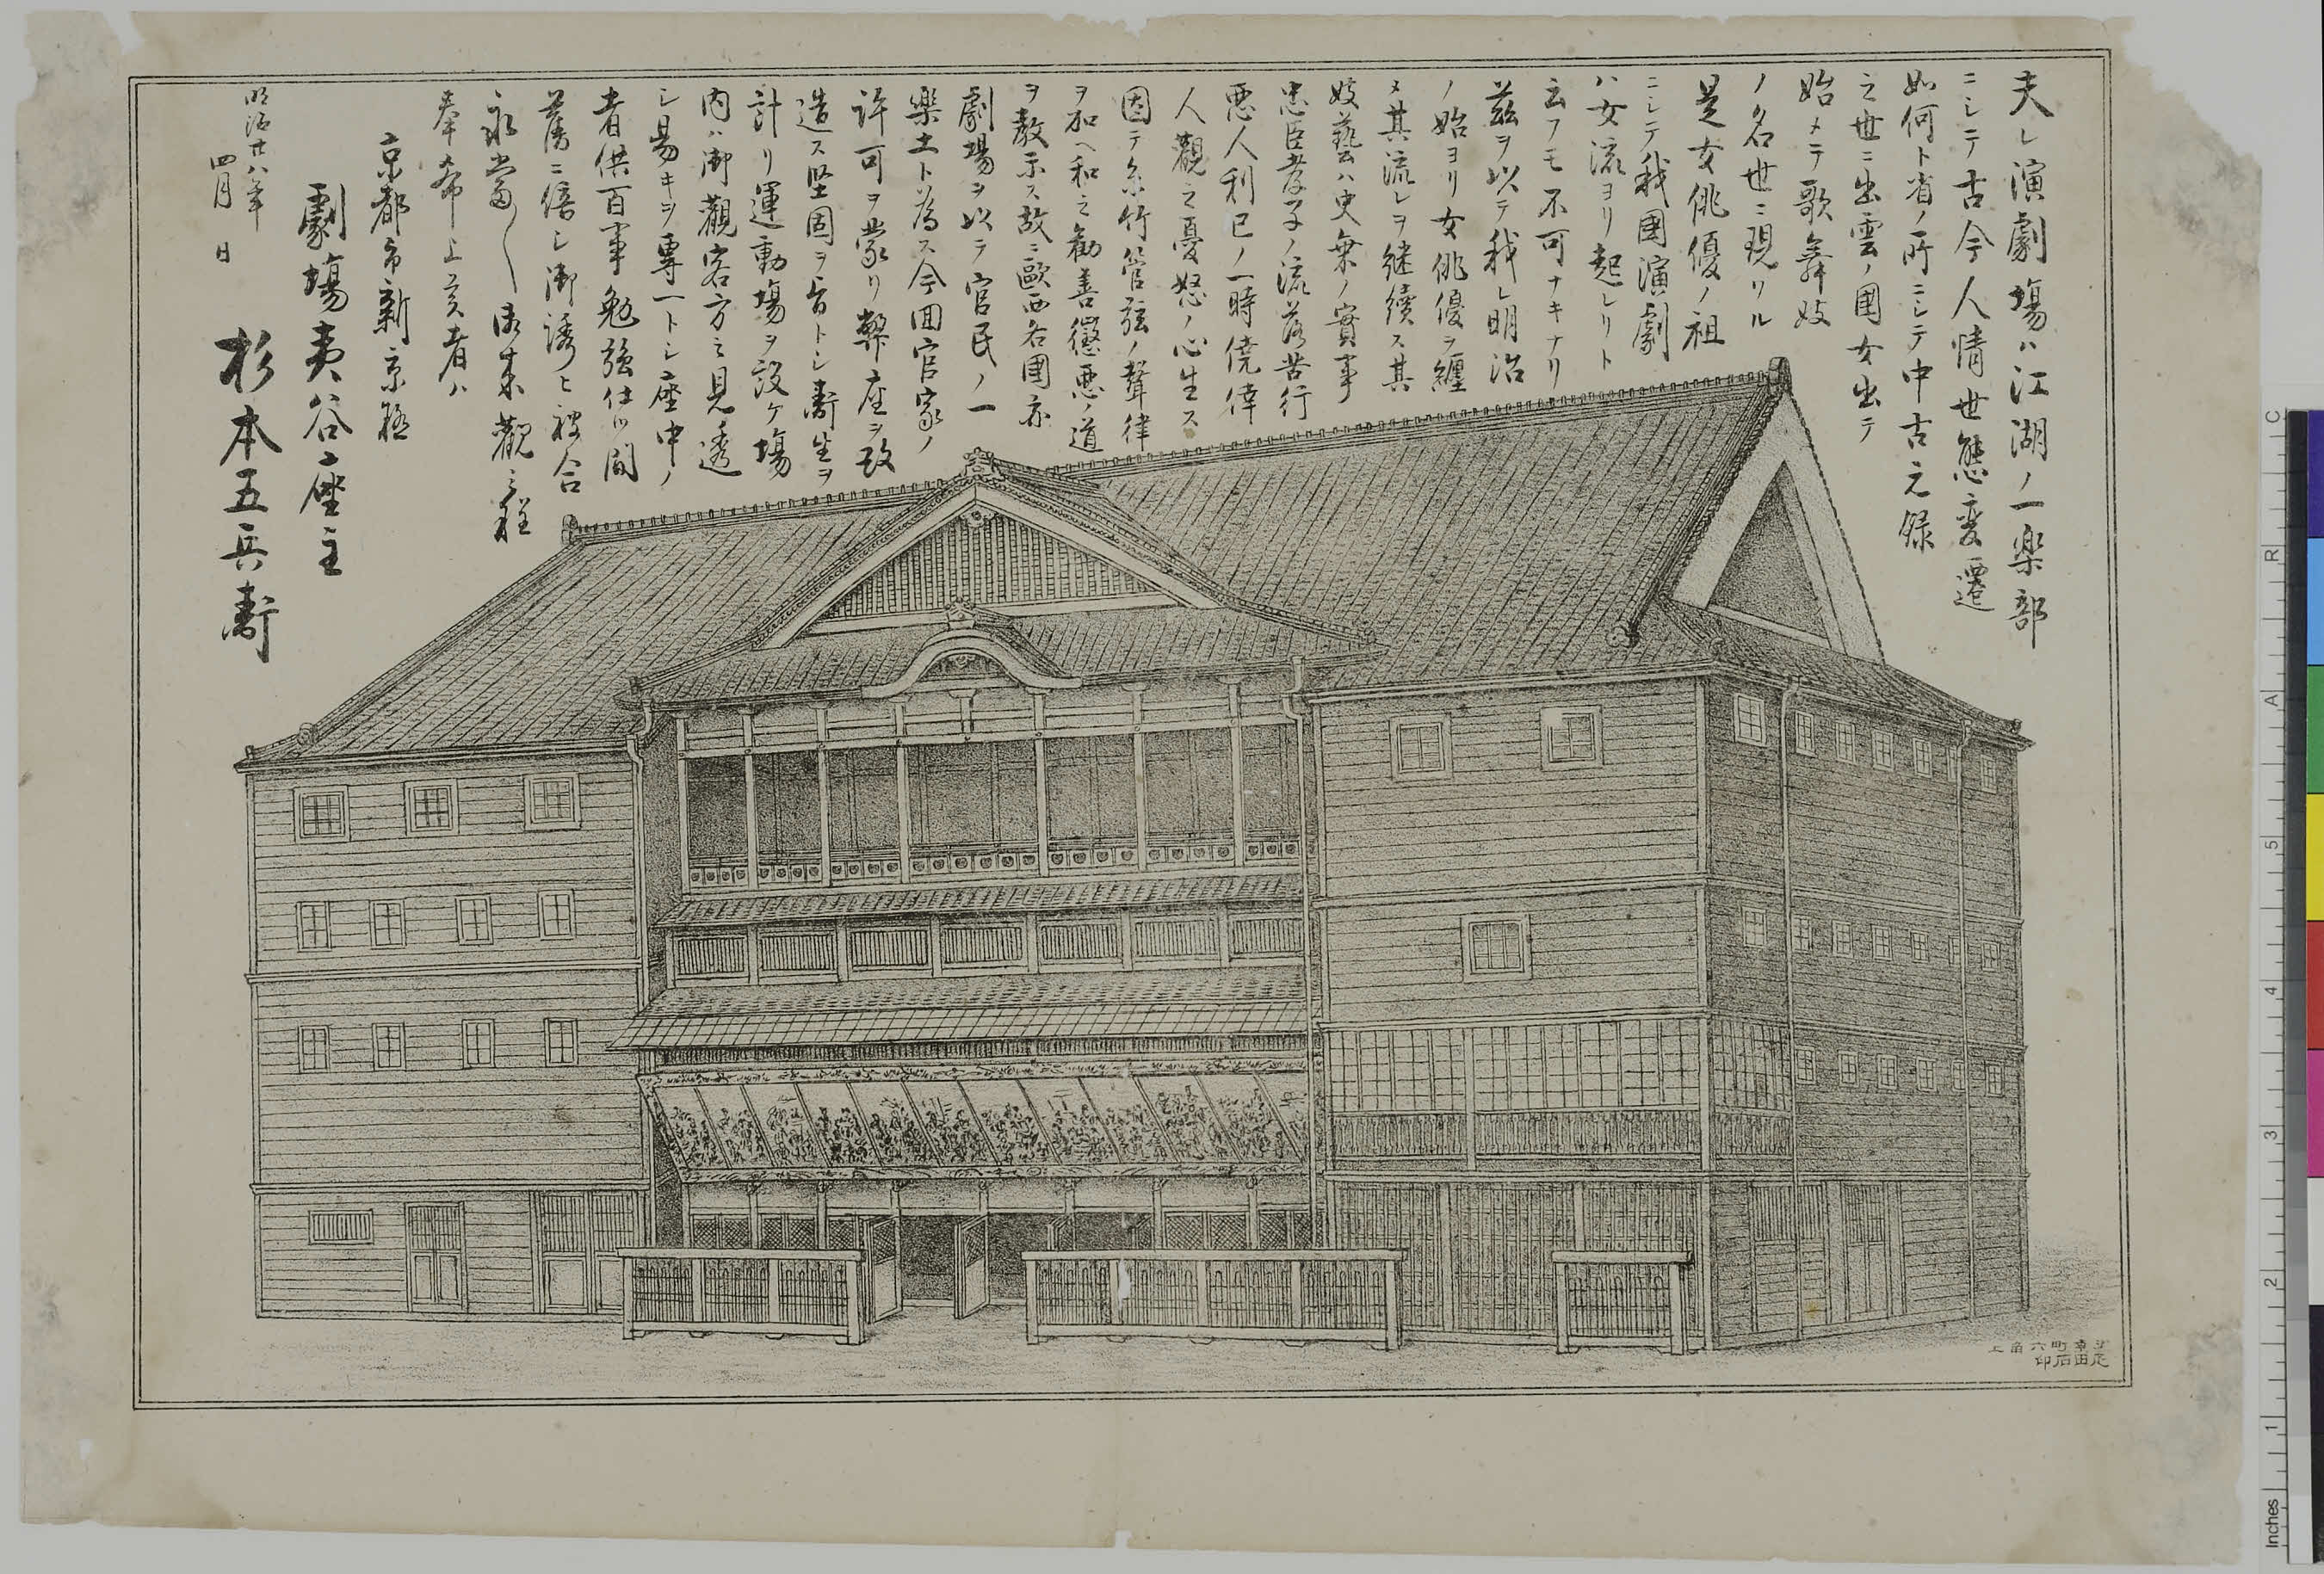 夫レ演劇場ハ江湖ノ一楽部
ニシテ古今人情世態変遷
如何ト省ノ所ニシテ中古元録
之世ニ出雲ノ国女出テ
始メテ歌舞妓
ノ名世ニ現リル
是女俳優ノ祖
ニシテ我國演劇
ハ女流ヨリ起レリト
云フモ不可ナキナリ
茲ヲ以テ我レ明治
ノ始ヨリ女俳優ヲ纏
メ其流レヲ継續ス其
妓藝ハ史乗ノ實事
忠臣孝子ノ流落苦行
悪人利已ノ一時僥倖
人觀之憂怒ノ心生ス
因テ糸竹管弦ノ聲律
ヲ加ヘ和之勧善懲悪ノ道
ヲ教示ス故ニ歐西各國亦
劇場ヲ以テ官民ノ一
楽土ト為ス今回官家ノ
許可ヲ蒙リ弊座ヲ改
造ス堅固ヲ旨トシ衛生ヲ
計リ運動場ヲ設ケ場
内ハ御觀客方之見透
シ易キヲ専一トシ座中ノ
者供百事勉強仕ツ間
舊ニ倍シ御誘ヒ被合
永當〱御来觀之程
奉希上候者ハ
京都市新京極
劇場夷谷座主
杉本五兵衛
明治廿八年
四月 日